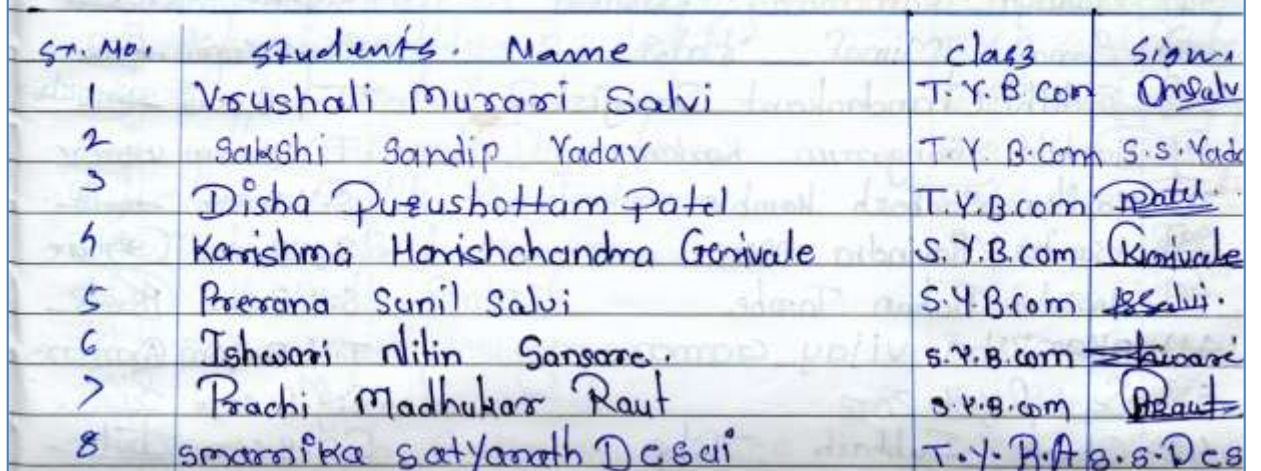 Sr. No. Students. Name Class Sign
1 Vrushali Murari Salvi T.Y.B.Com
2 Sakshi Sandip Yadav T.Y.B.Com S.S.Yada
3 Disha Purushottam Patel T.Y.B.com Patel.
4 Karishma Harishchandra Ganivale S.Y.B.com Kanivale
5 Prerana Sunil Salvi S.Y.B.com PSSalvi.
6 Ishwari Nitin Sansare. S.Y.B.com
7 Prachi Madhukar Raut S.Y.B.com PRaut
8 smarnika satyanath Desai T.Y.B.A S.S.Des